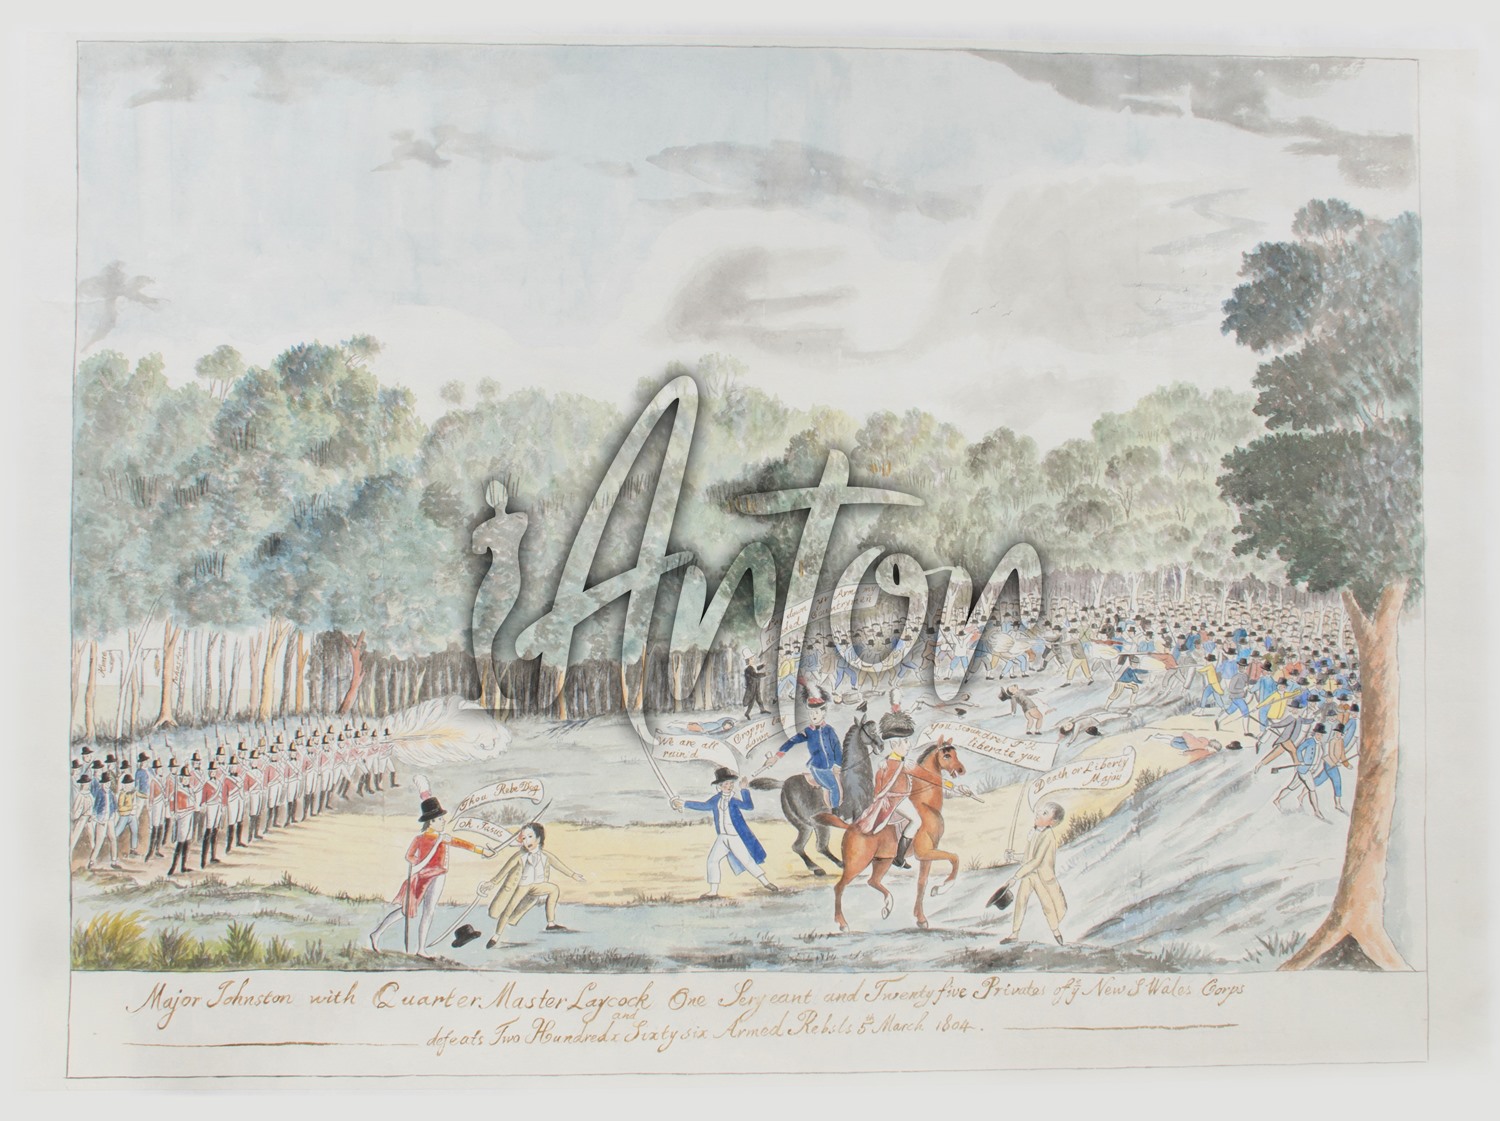 Anton
Lay down your Arms
We are all
ruin'd
Croppy lay
down
You scoundrel I'll
liberate you
Death or Liberty
Major
Thou Rebel Dog
Oh Jasus
Major Johnston with Quarter Master Laycock One Serjeant and Twenty five Privates of ye New S Wales Corps
and
defeats Two Hundred Sixty six Armed Rebels 5th March 1804.